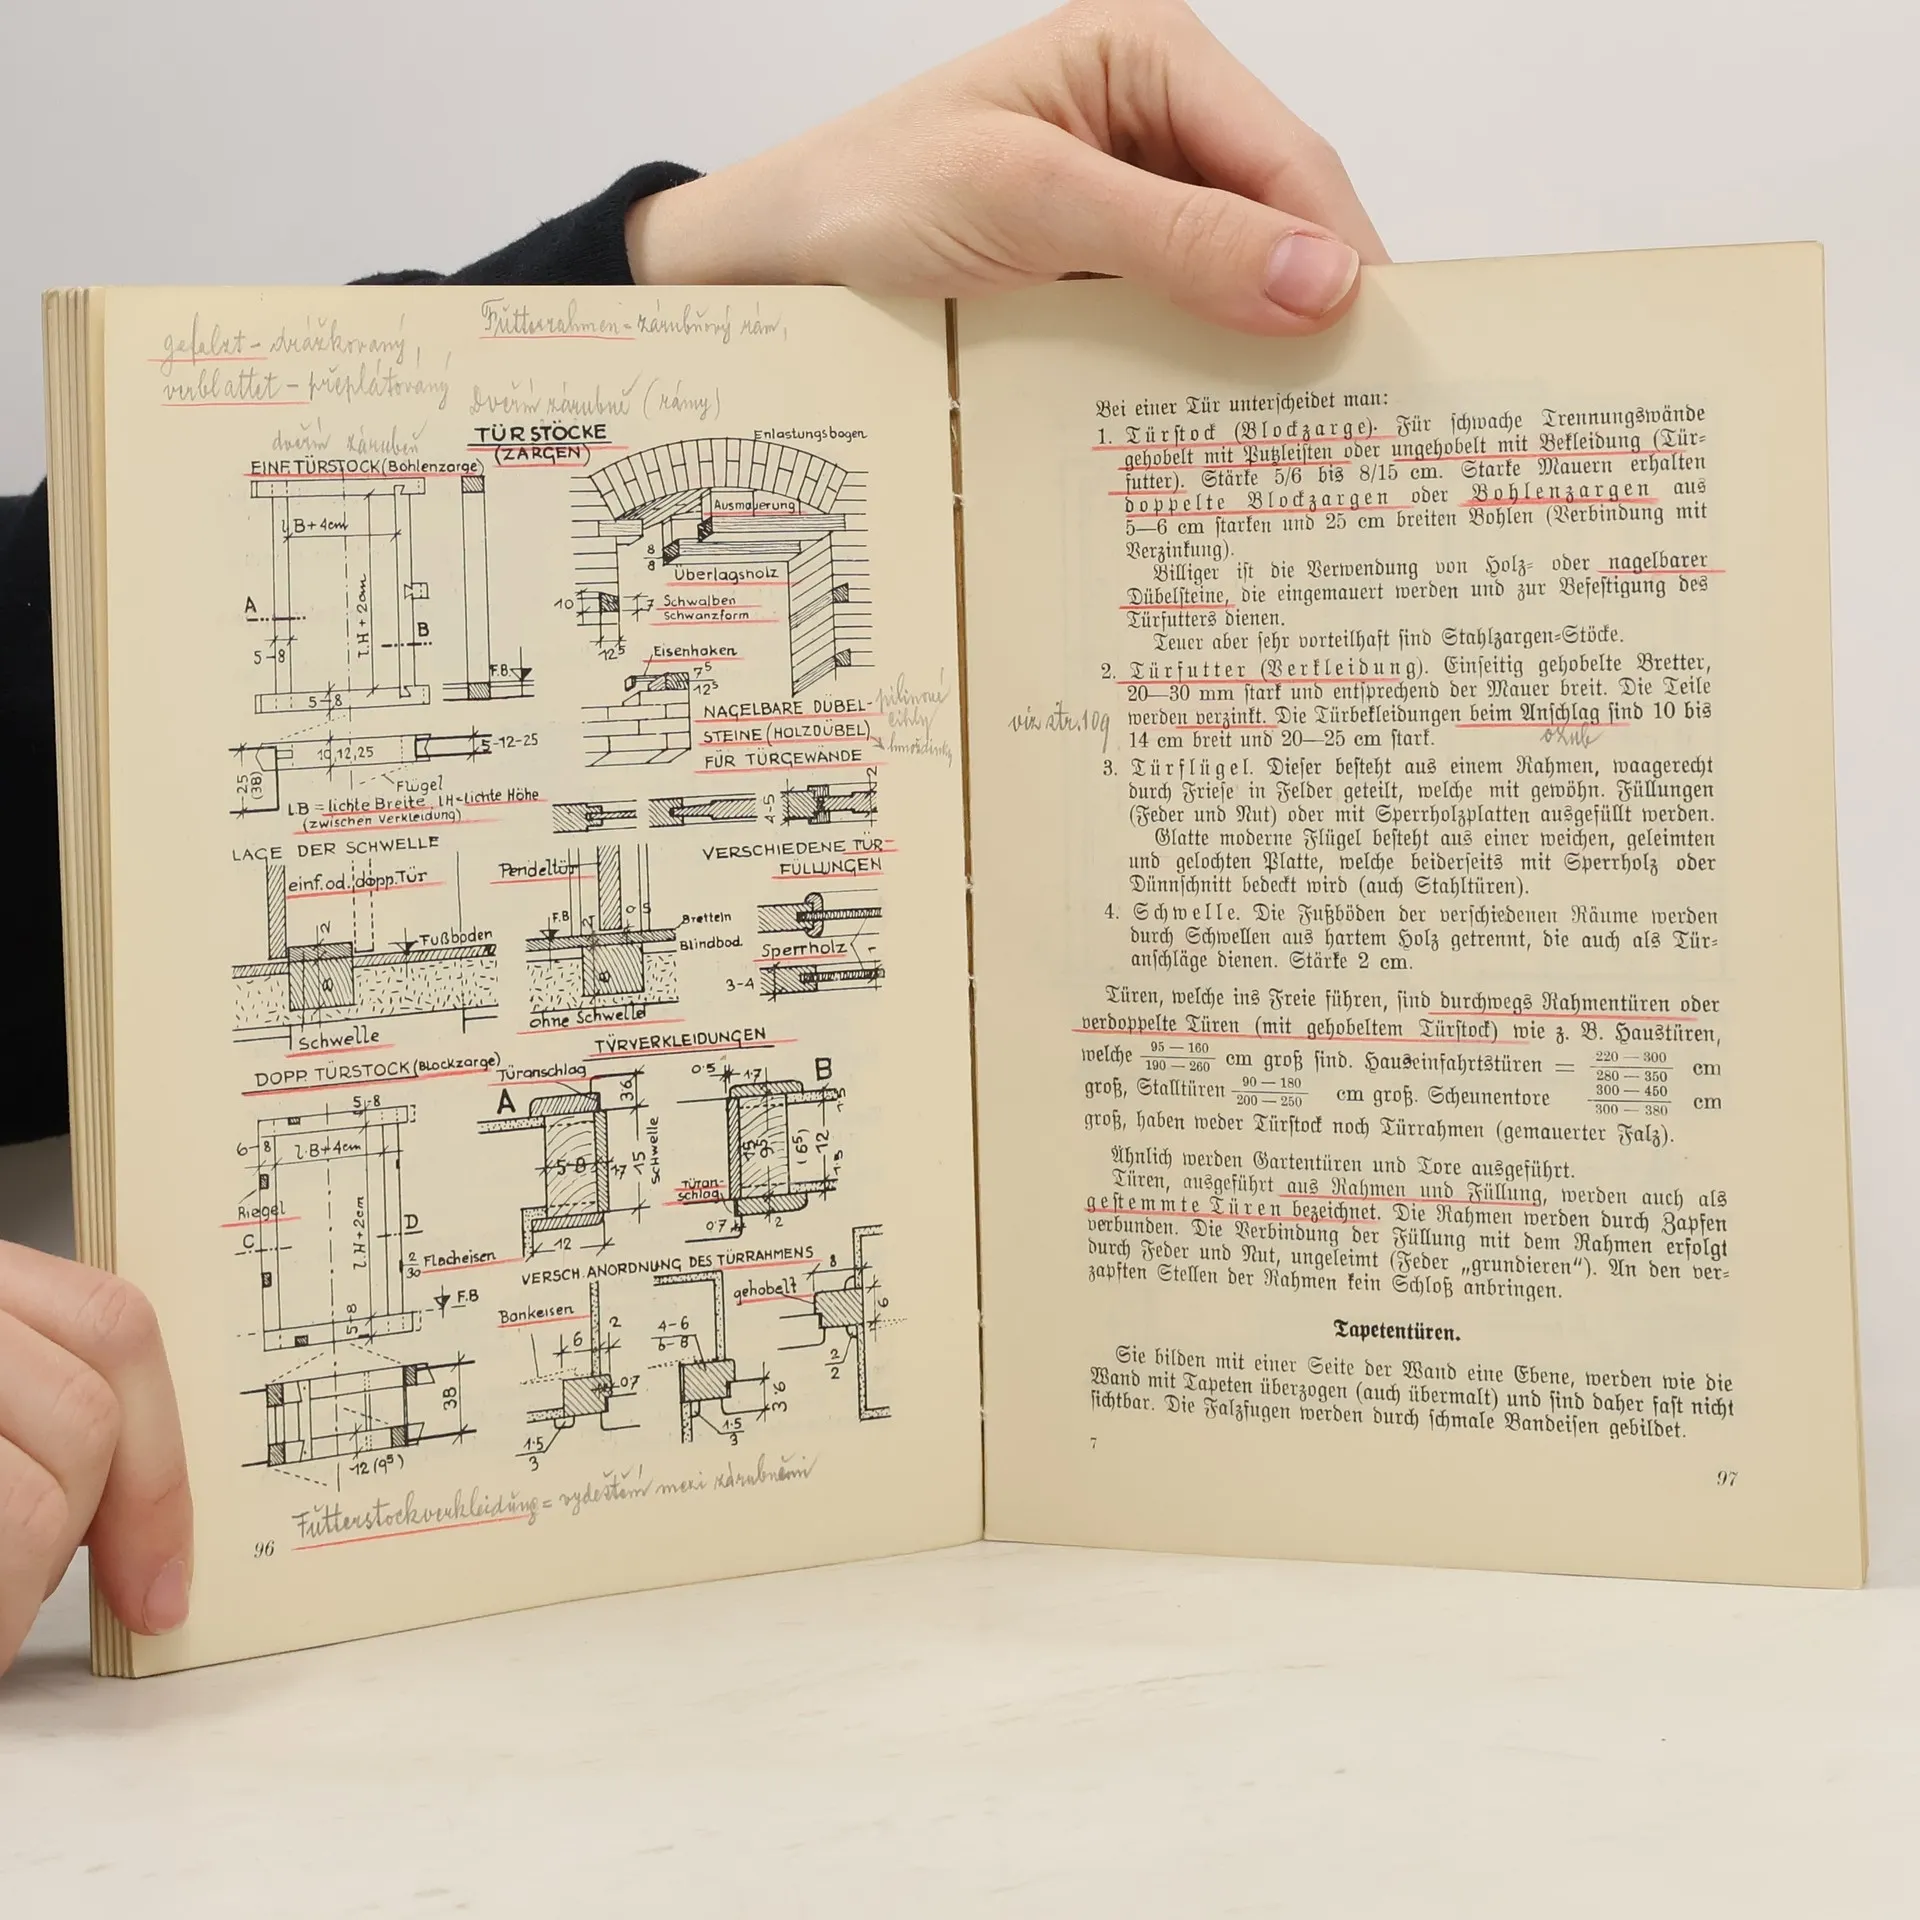 gefalzt - drážkovaný,
verblattet - přeplátovaný
Futterrahmen = zárubňový rám,
Dveřní zárubně (rámy)
dveřní zárubeň
TÜRSTÖCKE
(ZARGEN)
EINF. TÜRSTOCK (Bohlenzarge)
l B + 4cm
l.H + 2cm
A
B
5-8
5-8
F.B.
10,12,25
5-12-25
25
(38)
Flügel
l.B = lichte Breite, lH = lichte Höhe
(zwischen Verkleidung)
Enlastungsbogen
Ausmauerung
8
8
Überlagsholz
10
7
Schwalben
schwanzform
12⁵
Eisenhaken
7⁵
12⁵
NAGELBARE DÜBEL-
STEINE (HOLZDÜBEL)
FÜR TÜRGEWÄNDE
pilinové
cihly
hmoždinky
4-5
2
LAGE DER SCHWELLE
einf. od. dopp. Tür
2
Fußboden
8
Schwelle
Pendeltür
F.B
Bretteln
Blindbod.
8
ohne Schwelle
VERSCHIEDENE TÜR-
FÜLLUNGEN
Sperrholz
3-4
DOPP. TÜRSTOCK (Blockzarge)
5-8
6-8
l.B + 4cm
Riegel
C
l.H + 2cm
D
2
30
Flacheisen
5-8
F.B
38
12 (9⁵)
TÜRVERKLEIDUNGEN
Türanschlag
A
3.6
5-8
1.7
15
schwelle
12
0.5
1.7
B
1.5
15
9.5
(6⁵)
12
1.5
Türan-
schlag
0.7
2
VERSCH. ANORDNUNG DES TÜRRAHMENS
Bankeisen
6
2
0.7
1.5
3
4-6
6-8
3.6
1.5
3
gehobelt
8
6
2
2
Futterstockverkleidung = vydeštění mezi zárubněmi
96
Bei einer Tür unterscheidet man:
1. Türstock (Blockzarge). Für schwache Trennungswände
gehobelt mit Putzleisten oder ungehobelt mit Bekleidung (Tür-
futter). Stärke 5/6 bis 8/15 cm. Starke Mauern erhalten
doppelte Blockzargen oder Bohlenzargen aus
5—6 cm starken und 25 cm breiten Bohlen (Verbindung mit
Verzinkung).
Billiger ist die Verwendung von Holz- oder nagelbarer
Dübelsteine, die eingemauert werden und zur Befestigung des
Türfutters dienen.
Teuer aber sehr vorteilhaft sind Stahlzargen-Stöcke.
2. Türfutter (Verkleidung). Einseitig gehobelte Bretter,
20—30 mm stark und entsprechend der Mauer breit. Die Teile
viz str. 109
werden verzinkt. Die Türbekleidungen beim Anschlag sind 10 bis
14 cm breit und 20—25 cm stark.
ozub
3. Türflügel. Dieser besteht aus einem Rahmen, waagerecht
durch Friese in Felder geteilt, welche mit gewöhn. Füllungen
(Feder und Nut) oder mit Sperrholzplatten ausgefüllt werden.
Glatte moderne Flügel besteht aus einer weichen, geleimten
und gelochten Platte, welche beiderseits mit Sperrholz oder
Dünnschnitt bedeckt wird (auch Stahltüren).
4. Schwelle. Die Fußböden der verschiedenen Räume werden
durch Schwellen aus hartem Holz getrennt, die auch als Tür-
anschläge dienen. Stärke 2 cm.
Türen, welche ins Freie führen, sind durchwegs Rahmentüren oder
verdoppelte Türen (mit gehobeltem Türstock) wie z. B. Haustüren,
welche 95 — 160 / 190 — 260 cm groß sind. Hauseinfahrtstüren = 220 — 300 / 280 — 350 cm
groß, Stalltüren 90 — 180 / 200 — 250 cm groß. Scheunentore 300 — 450 / 300 — 380 cm
groß, haben weder Türstock noch Türrahmen (gemauerter Falz).
Ähnlich werden Gartentüren und Tore ausgeführt.
Türen, ausgeführt aus Rahmen und Füllung, werden auch als
gestemmte Türen bezeichnet. Die Rahmen werden durch Zapfen
verbunden. Die Verbindung der Füllung mit dem Rahmen erfolgt
durch Feder und Nut, ungeleimt (Feder „grundieren“). An den ver-
zapften Stellen der Rahmen kein Schloß anbringen.
Tapetentüren.
Sie bilden mit einer Seite der Wand eine Ebene, werden wie die
Wand mit Tapeten überzogen (auch übermalt) und sind daher fast nicht
sichtbar. Die Falzfugen werden durch schmale Bandeisen gebildet.
7
97